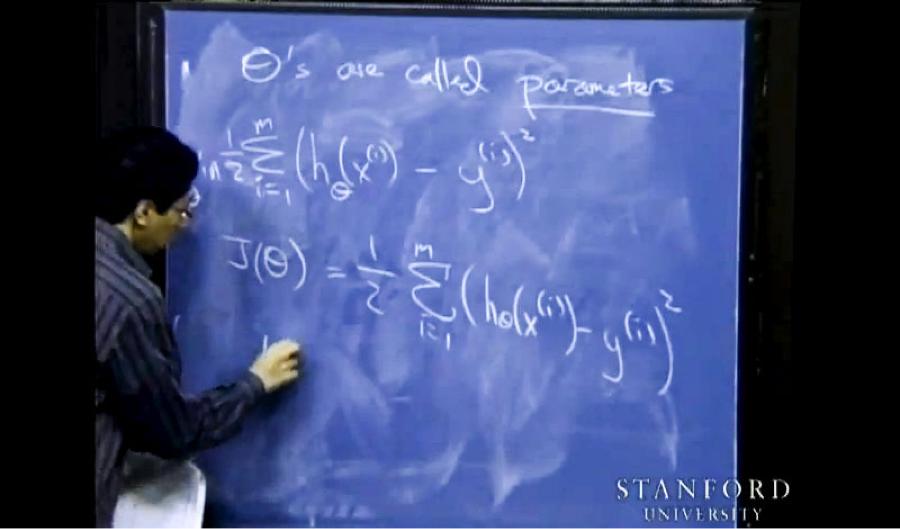 Θ's are called parameters
n 1/2 Σ_{i=1}^{m} (h_θ(x^{(i)}) - y^{(i)})^2
J(θ) = 1/2 Σ_{i=1}^{m} (h_θ(x^{(i)}) - y^{(i)})^2
STANFORD
UNIVERSITY